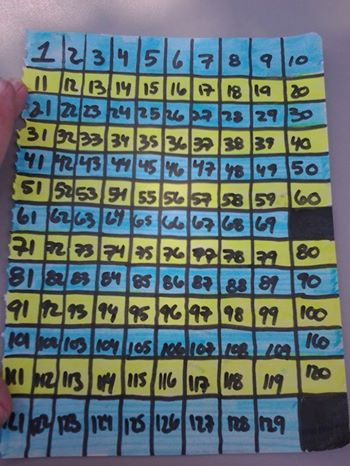 1 2 3 4 5 6 7 8 9 10
11 12 13 14 15 16 17 18 19 20
21 22 23 24 25 26 27 28 29 30
31 32 33 34 35 36 37 38 39 40
41 42 43 44 45 46 47 48 49 50
51 52 53 54 55 56 57 58 59 60
61 62 63 64 65 66 67 68 69
71 72 73 74 75 76 77 78 79 80
81 82 83 84 85 86 87 88 89 90
91 92 93 94 95 96 97 98 99 100
101 102 103 104 105 106 107 108 109 110
111 112 113 114 115 116 117 118 119 120
121 122 123 124 125 126 127 128 129